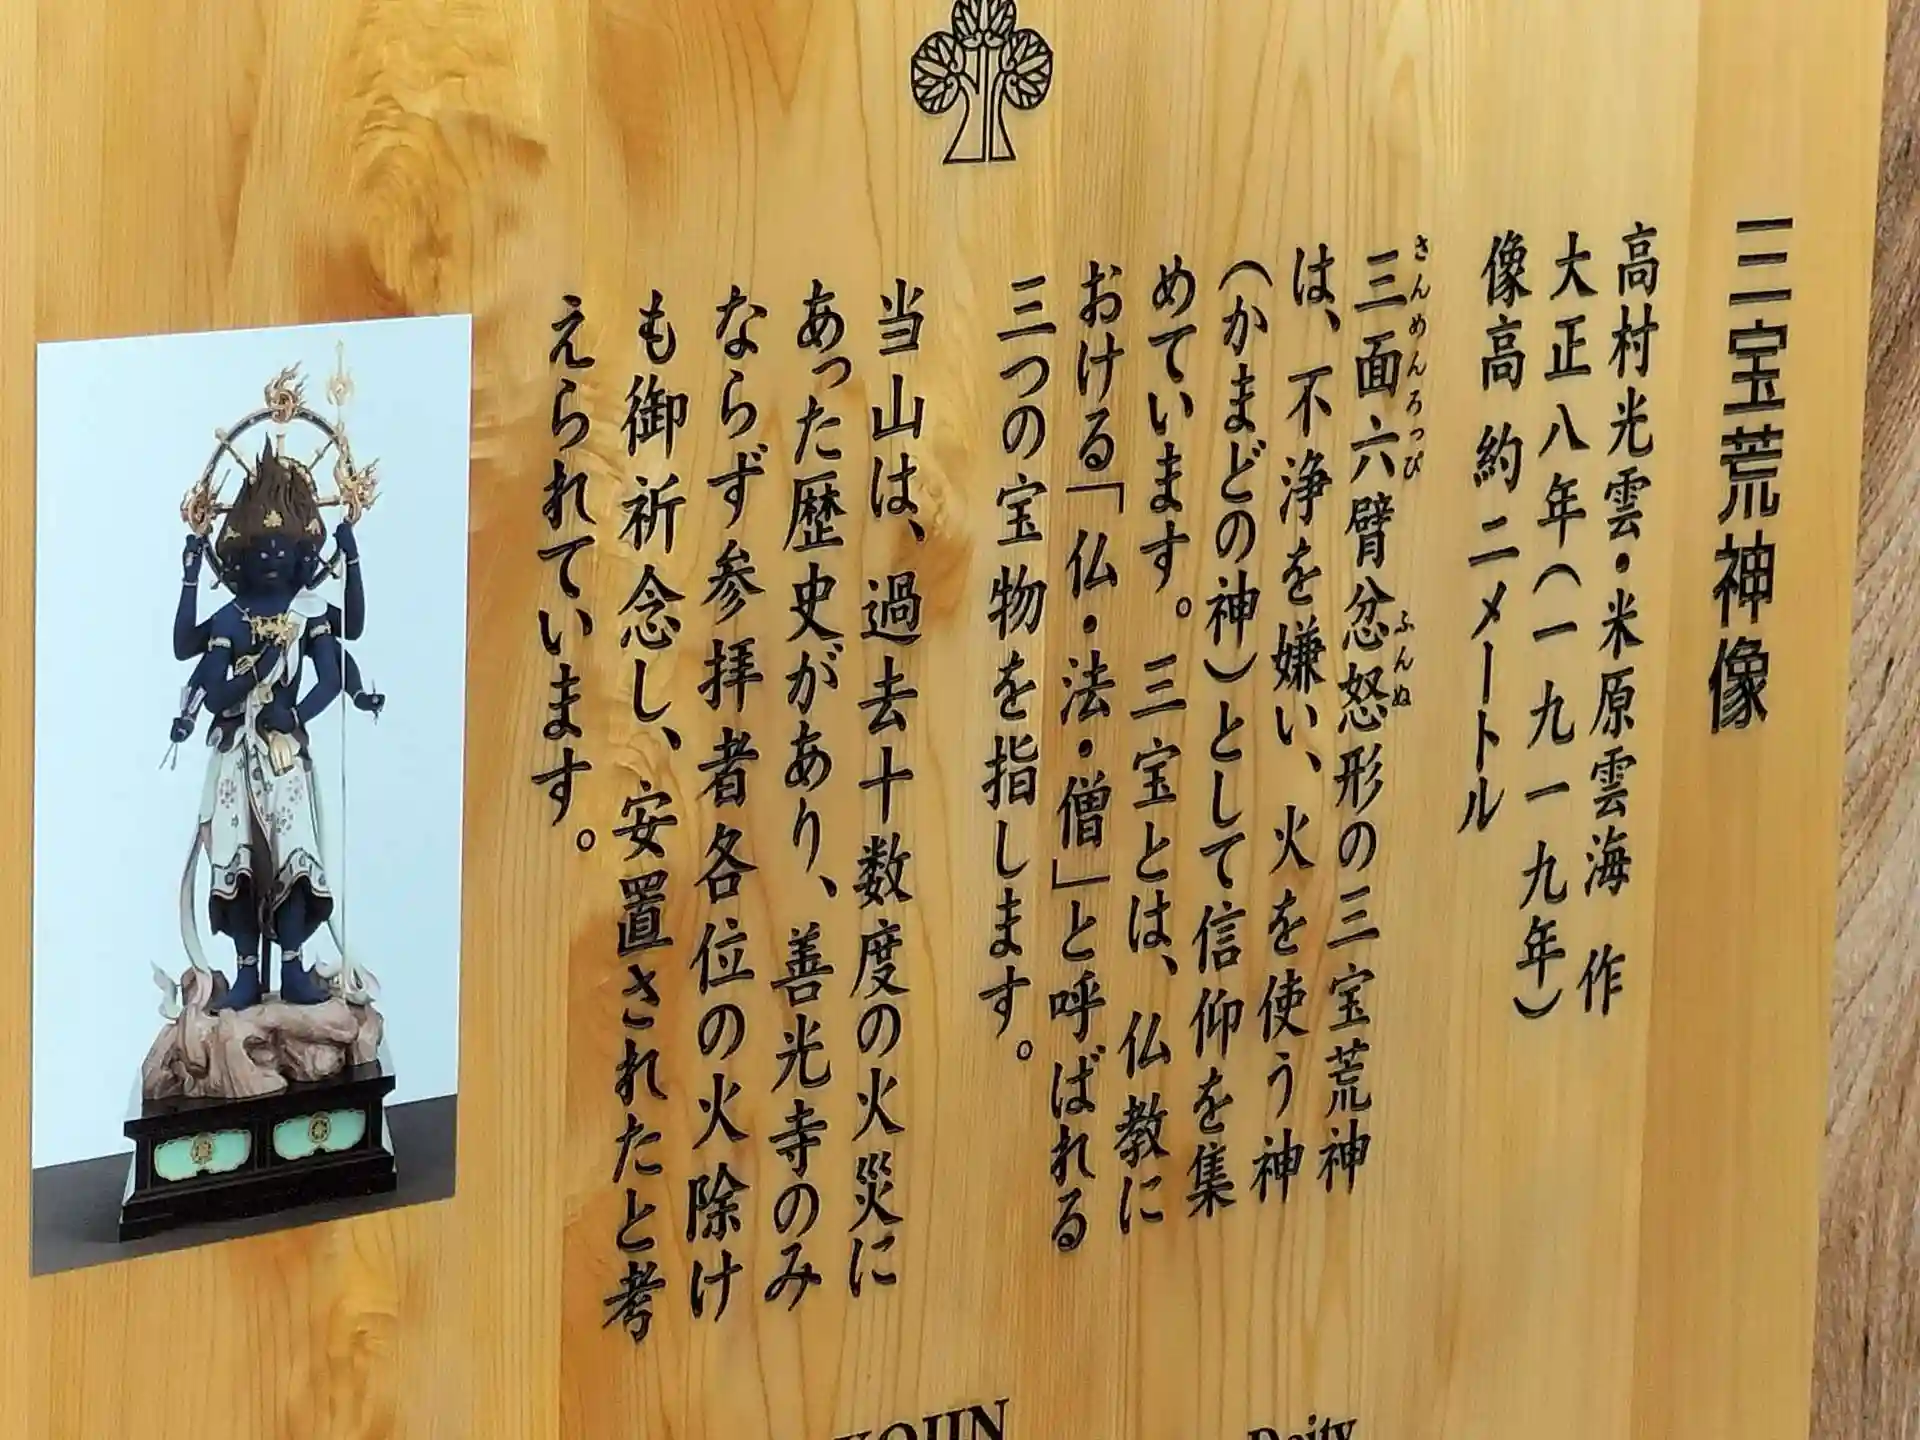 三宝荒神像
高村光雲・米原雲海 作
大正八年（一九一九年）
像高 約 二メートル
さんめんろっぴ ふんぬ
三面六臂忿怒形の三宝荒神
は、不浄を嫌い、火を使う神
（かまどの神）として信仰を集
めています。三宝とは、仏教に
おける「仏・法・僧」と呼ばれる
三つの宝物を指します。
当山は、過去十数度の火災に
あった歴史があり、善光寺のみ
ならず参拝者各位の火除け
も御祈念し、安置されたと考
えられています。
KOJIN
Deity